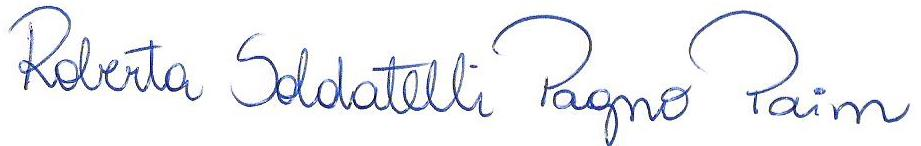 Roberta Soldatelli Pagno Paim